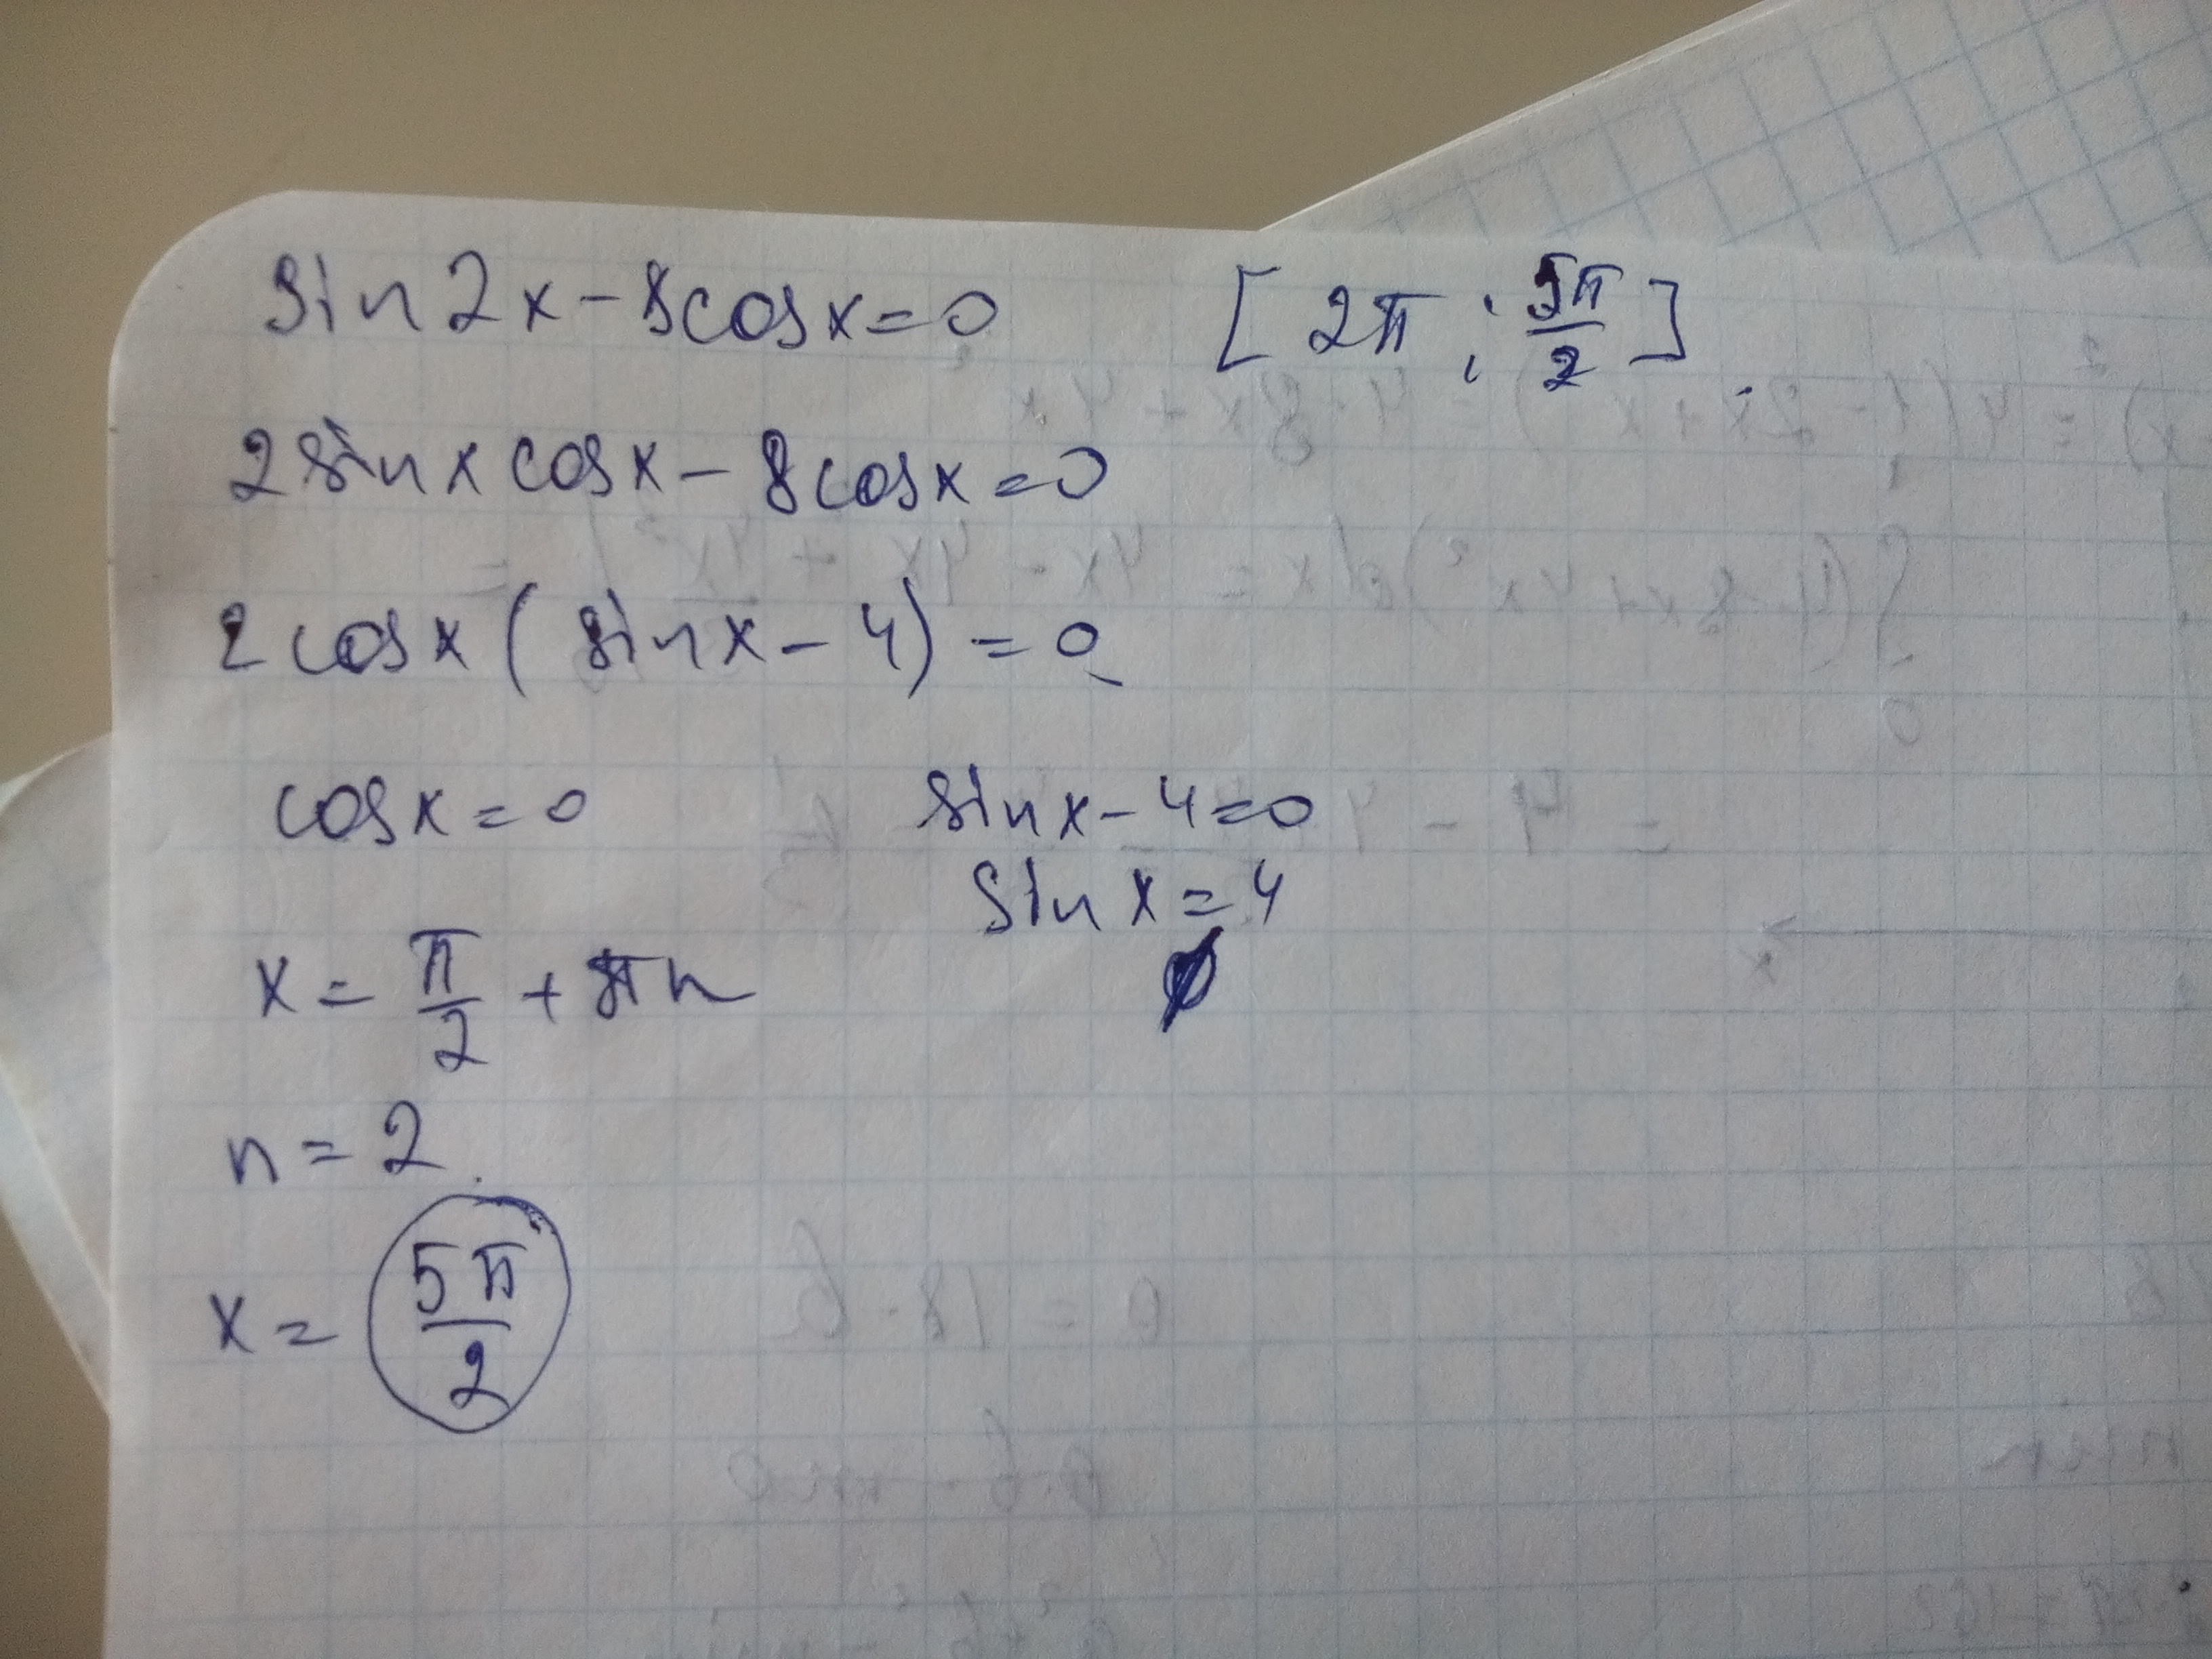 sin2x-8cosx=0 [2π; 5π/2]
2sinxcosx-8cosx=0
2cosx(sinx-4)=0
cosx=0 sinx-4=0
sinx=4
x=π/2+πn ∅
n=2
x=5π/2